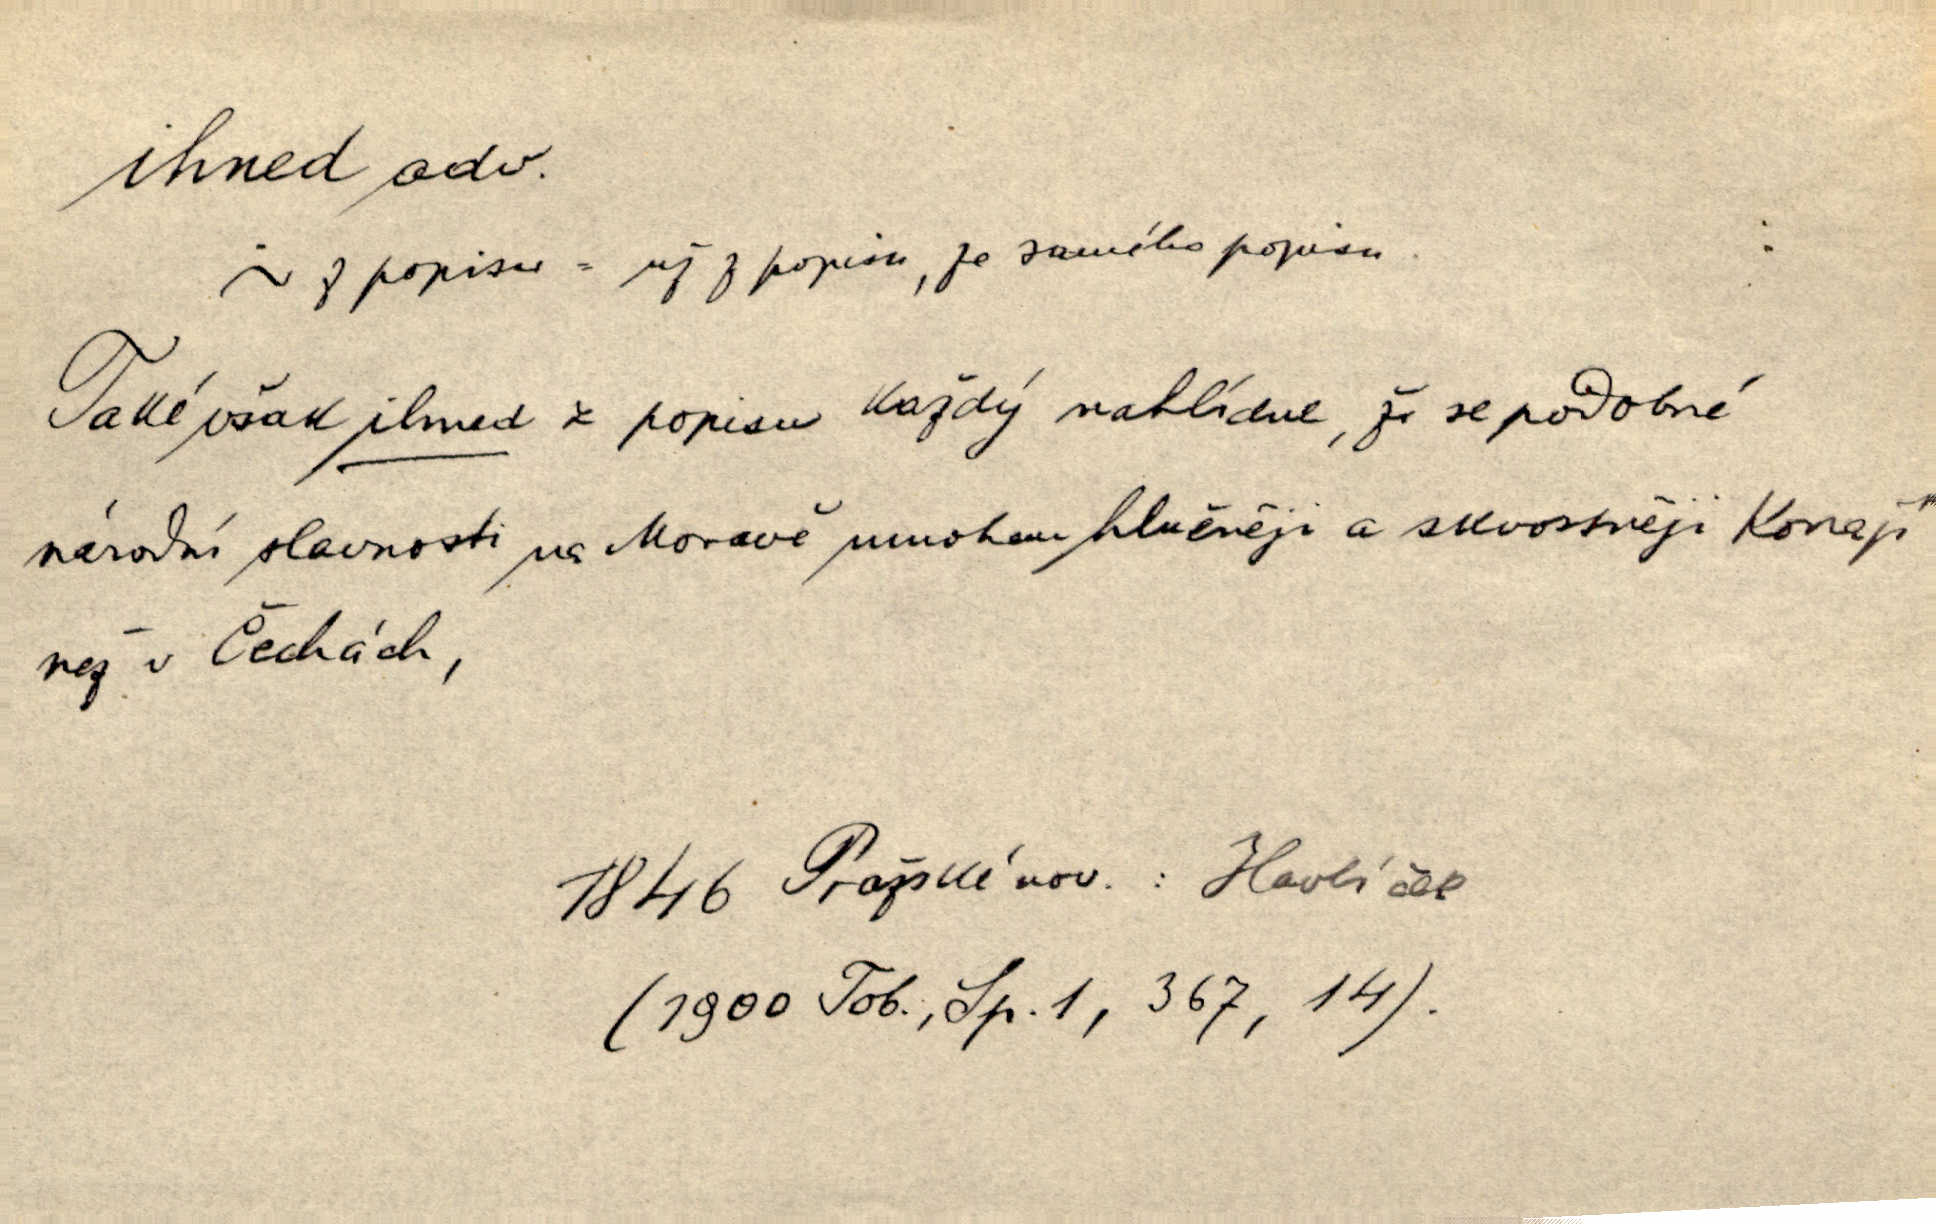 ihned adv.
~ z popisu = už z popisu, ze samého popisu.
Také však ihned z popisu každý nahlídne, že se podobné
národní slavnosti na Moravě mnohem hlučněji a skvostněji konají
než v Čechách,
1846 Pražské nov. : Havlíček
(1900 Tob., Sp. 1, 367, 14).